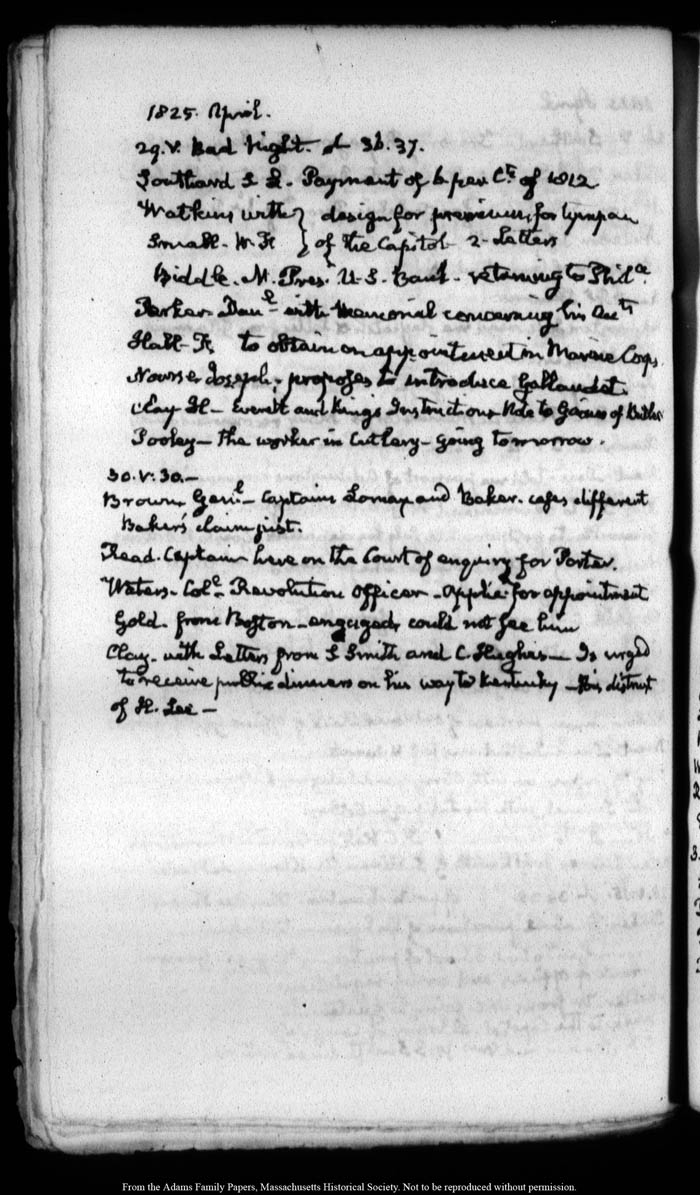 1825. April.
29. V. Bad Night. 36. 37.
Southard S L. Payment of 6 per Cts. of 1812
Watkins with } design for premium, for tympan
Small. W. F. } of the Capitol 2 Letters
Biddle. N. Pres. U.S. Bank - returning to Phila.
Parker Danl. with Memorial concerning his Accts
Hall - to obtain an appointment in Marine Corps
Nourse Joseph, proposes to introduce Gallaudet.
Clay H - Everett and King's Instructions Note to Gaines of Butler
Pooley - the worker in Cutlery - going tomorrow.
30. V: 30. -
Brown, Genl. - Captains Lomax and Baker. cases different
Baker's claim just.
Read. Captain here on the Court of enquiry for Porter.
Waters. Coll. Revolution Officer - applies for appointment
Gold. from Boston - engaged, could not see him
Clay. with Letters from S Smith and C. Hughes - Is urged
to receive public dinners on his way to Kentucky - His distrust
of H. Lee -
From the Adams Family Papers, Massachusetts Historical Society. Not to be reproduced without permission.